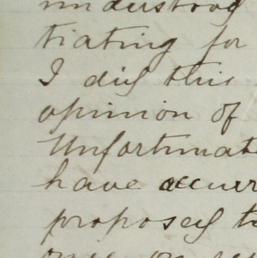 understood
tiating for
I did this
opinion of
Unfortunat
have occurr
proposed t